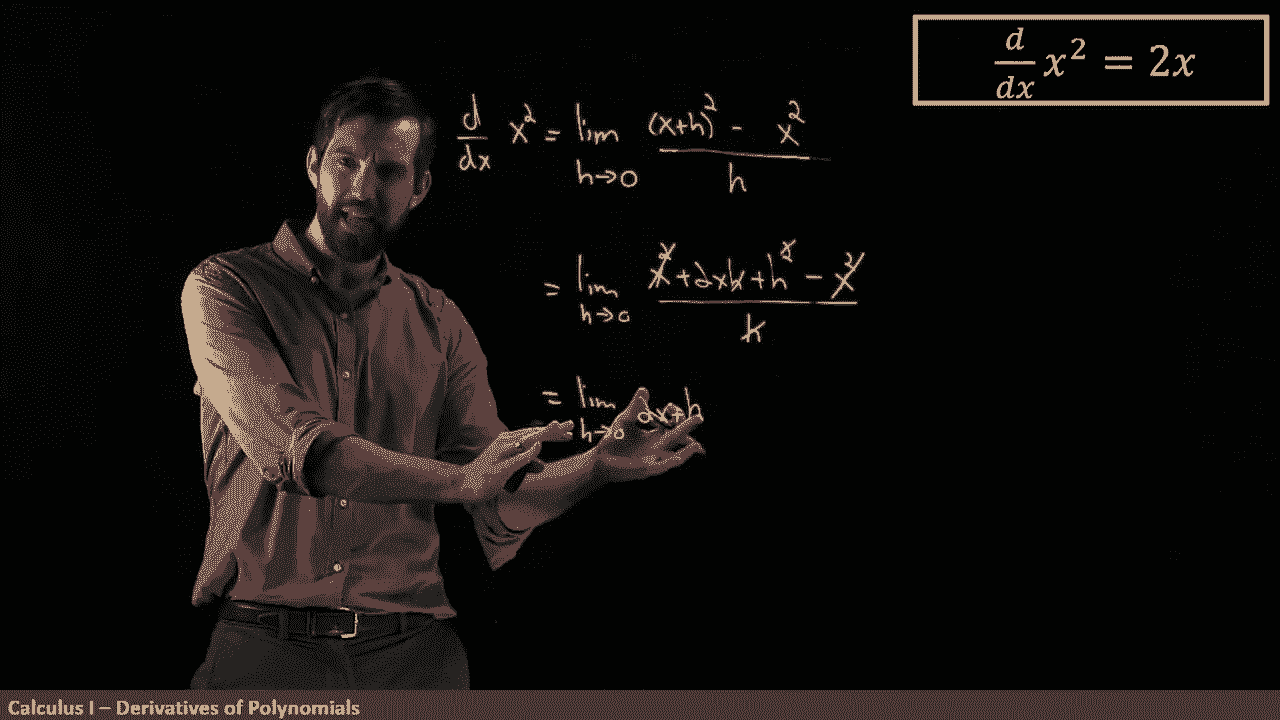 d/dx x² = 2x
d/dx x² = lim h→0 (x+h)² - x² / h
= lim h→0 x² + 2xh + h² - x² / h
= lim h→0 2x+h
Calculus I – Derivatives of Polynomials